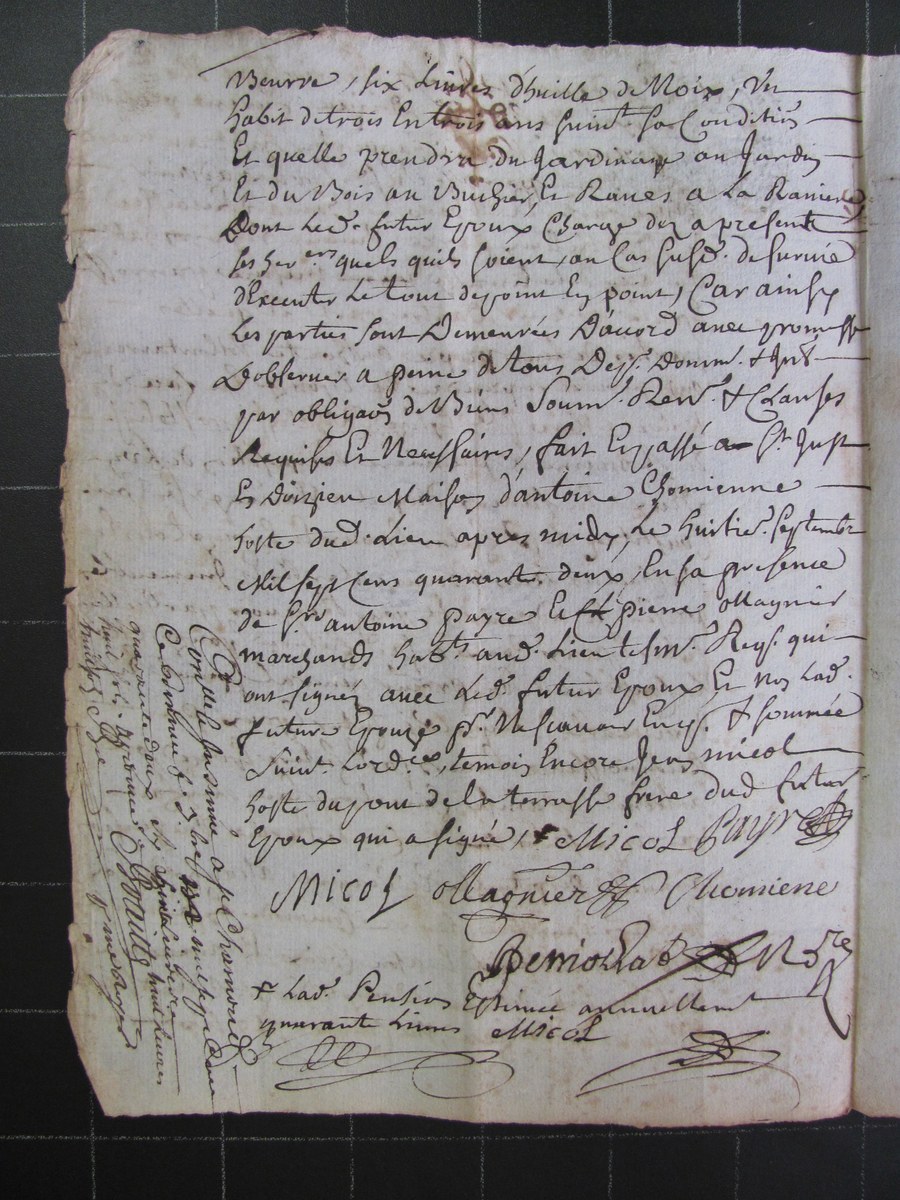 Beurre, six Livres d'huille de Noix, Un
habit de trois En trois ans suivt. sa Condition
Et quelle prendra du Jardinage au Jardin
Et du Bois au Buchier, Et Raves a La Raviere
Dont Led. futur Epoux Charge dez a present
ses her.ers quels quils soient, au Cas susd. de survie
d'Executer Le tout de point En point, Car ainsy
Les parties sont Demeurées D'accord avec promesse
D'observer a peine de tous Dep. Domm. & Int.
par obligaôn de Biens Soum. Ren. & Clauses
Requises Et Necessaires, fait Et passé a St. Just
En Doizieu Maison d'antoine Chomienne
hoste dud. Lieu apres midy, Le huitie. septembre
Mil sept cens quarante deux, En la presence
de Srs antoine payre Et pierre ollagnier
marchands habts. aud. Lieu tesm. Req. qui
ont signéz avec Led. futur Epoux Et non Lad.
future Epouze pr. ne scavoir Enq. & sommée
suivt. Lord.ce, temoin Encore Jean micol
hoste du pont de la terrasse frere dud. futur
Epoux qui a signé, + Micol Payre
Micol ollagnier Chomiene
N.re
+ Lad. Pension Estimée annuellement
quarante Livres Micol
Conlle. & a St Chamond
quarante deux
huit Livres